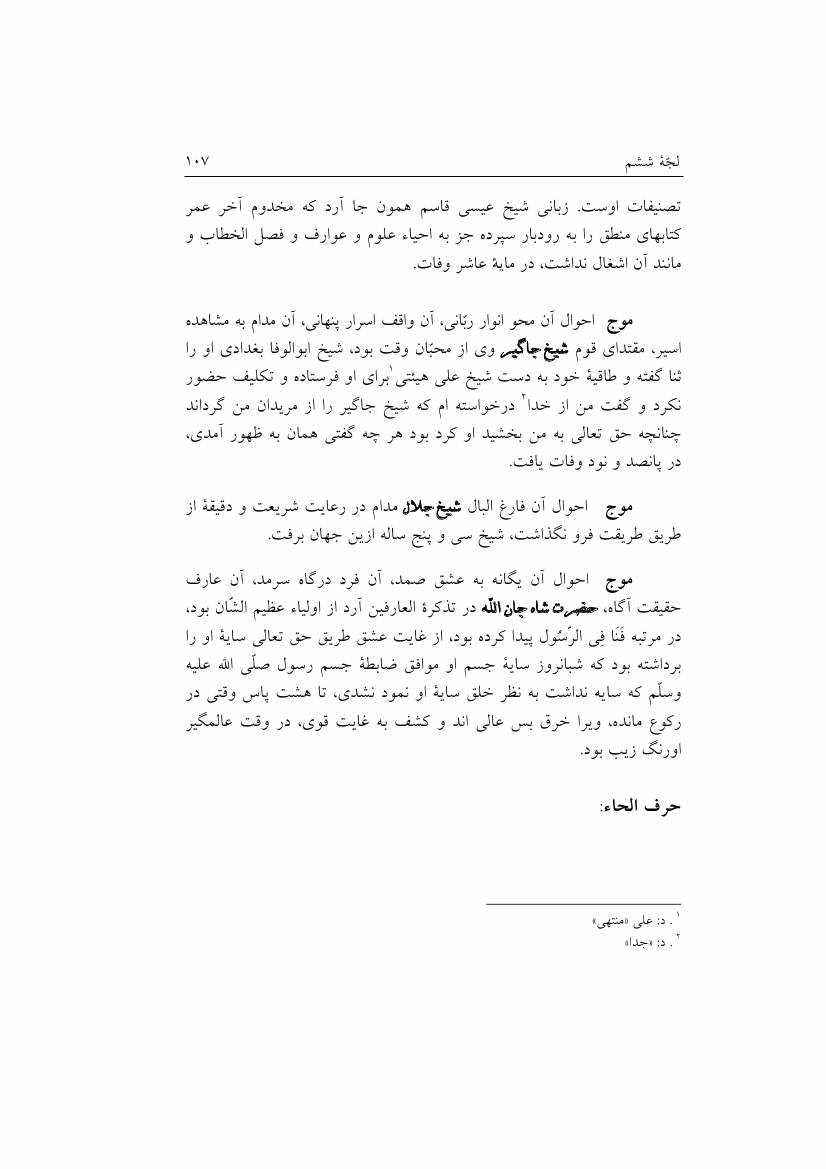 لجّهٔ ششم ۱۰۷
تصنیفات اوست. زبانی شیخ عیسی قاسم همون جا آرد که مخدوم آخر عمر
کتابهای منطق را به رودبار سپرده جز به احیاء علوم و عوارف و فصل الخطاب و
مانند آن اشغال نداشت، در مایهٔ عاشر وفات.
موج احوال آن محو انوار ربّانی، آن واقف اسرار پنهانی، آن مدام به مشاهده
اسیر، مقتدای قوم شیخ جاگیر وی از محبّان وقت بود، شیخ ابوالوفا بغدادی او را
ثنا گفته و طاقیهٔ خود به دست شیخ علی هیئتی۱برای او فرستاده و تکلیف حضور
نکرد و گفت من از خدا۲ درخواسته ام که شیخ جاگیر را از مریدان من گرداند
چنانچه حق تعالی به من بخشید او کرد بود هر چه گفتی همان به ظهور آمدی،
در پانصد و نود وفات یافت.
موج احوال آن فارغ البال شیخ جلال مدام در رعایت شریعت و دقیقهٔ از
طریق طریقت فرو نگذاشت، شیخ سی و پنج ساله ازین جهان برفت.
موج احوال آن یگانه به عشق صمد، آن فرد درگاه سرمد، آن عارف
حقیقت آگاه، حضرت شاه جان اللّه در تذکرة العارفین آرد از اولیاء عظیم الشّان بود،
در مرتبه فَنَا فِی الرّسُول پیدا کرده بود، از غایت عشق طریق حق تعالی سایهٔ او را
برداشته بود که شبانروز سایهٔ جسم او موافق ضابطهٔ جسم رسول صلّی الله علیه
وسلّم که سایه نداشت به نظر خلق سایهٔ او نمود نشدی، تا هشت پاس وقتی در
رکوع مانده، ویرا خرق بس عالی اند و کشف به غایت قوی، در وقت عالمگیر
اورنگ زیب بود.
حرف الحاء:
۱ . د: علی «منتهی»
۲ . د: «جدا»